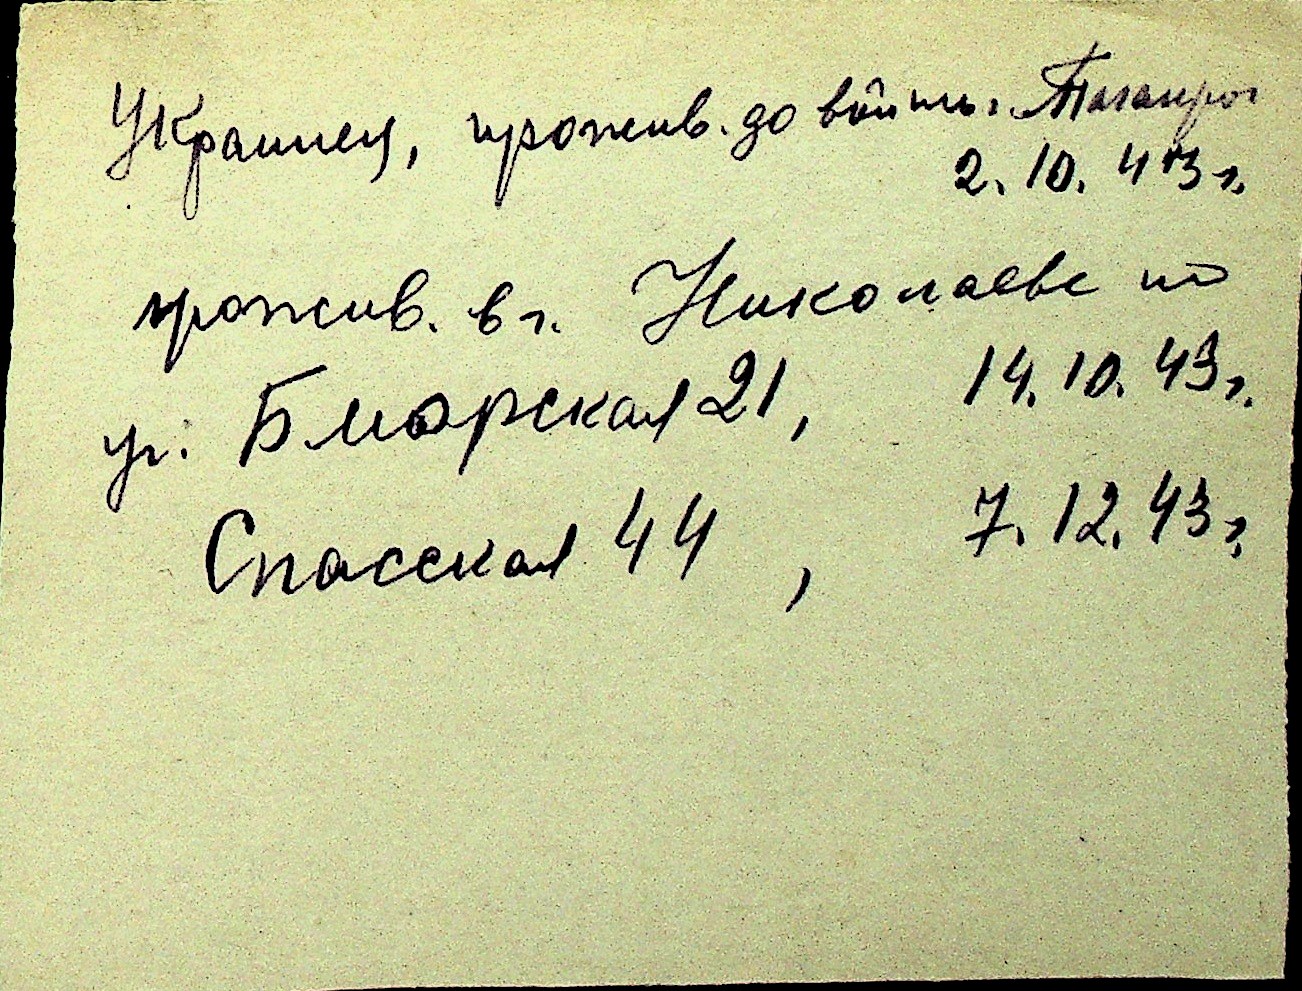 Украинец, прожив. до войны г. Таганрог
2. 10. 43 г.
прожив. в г. Николаеве по
ул. Б морская 21, 14. 10. 43 г.
Спасская 44, 7. 12. 43 г.